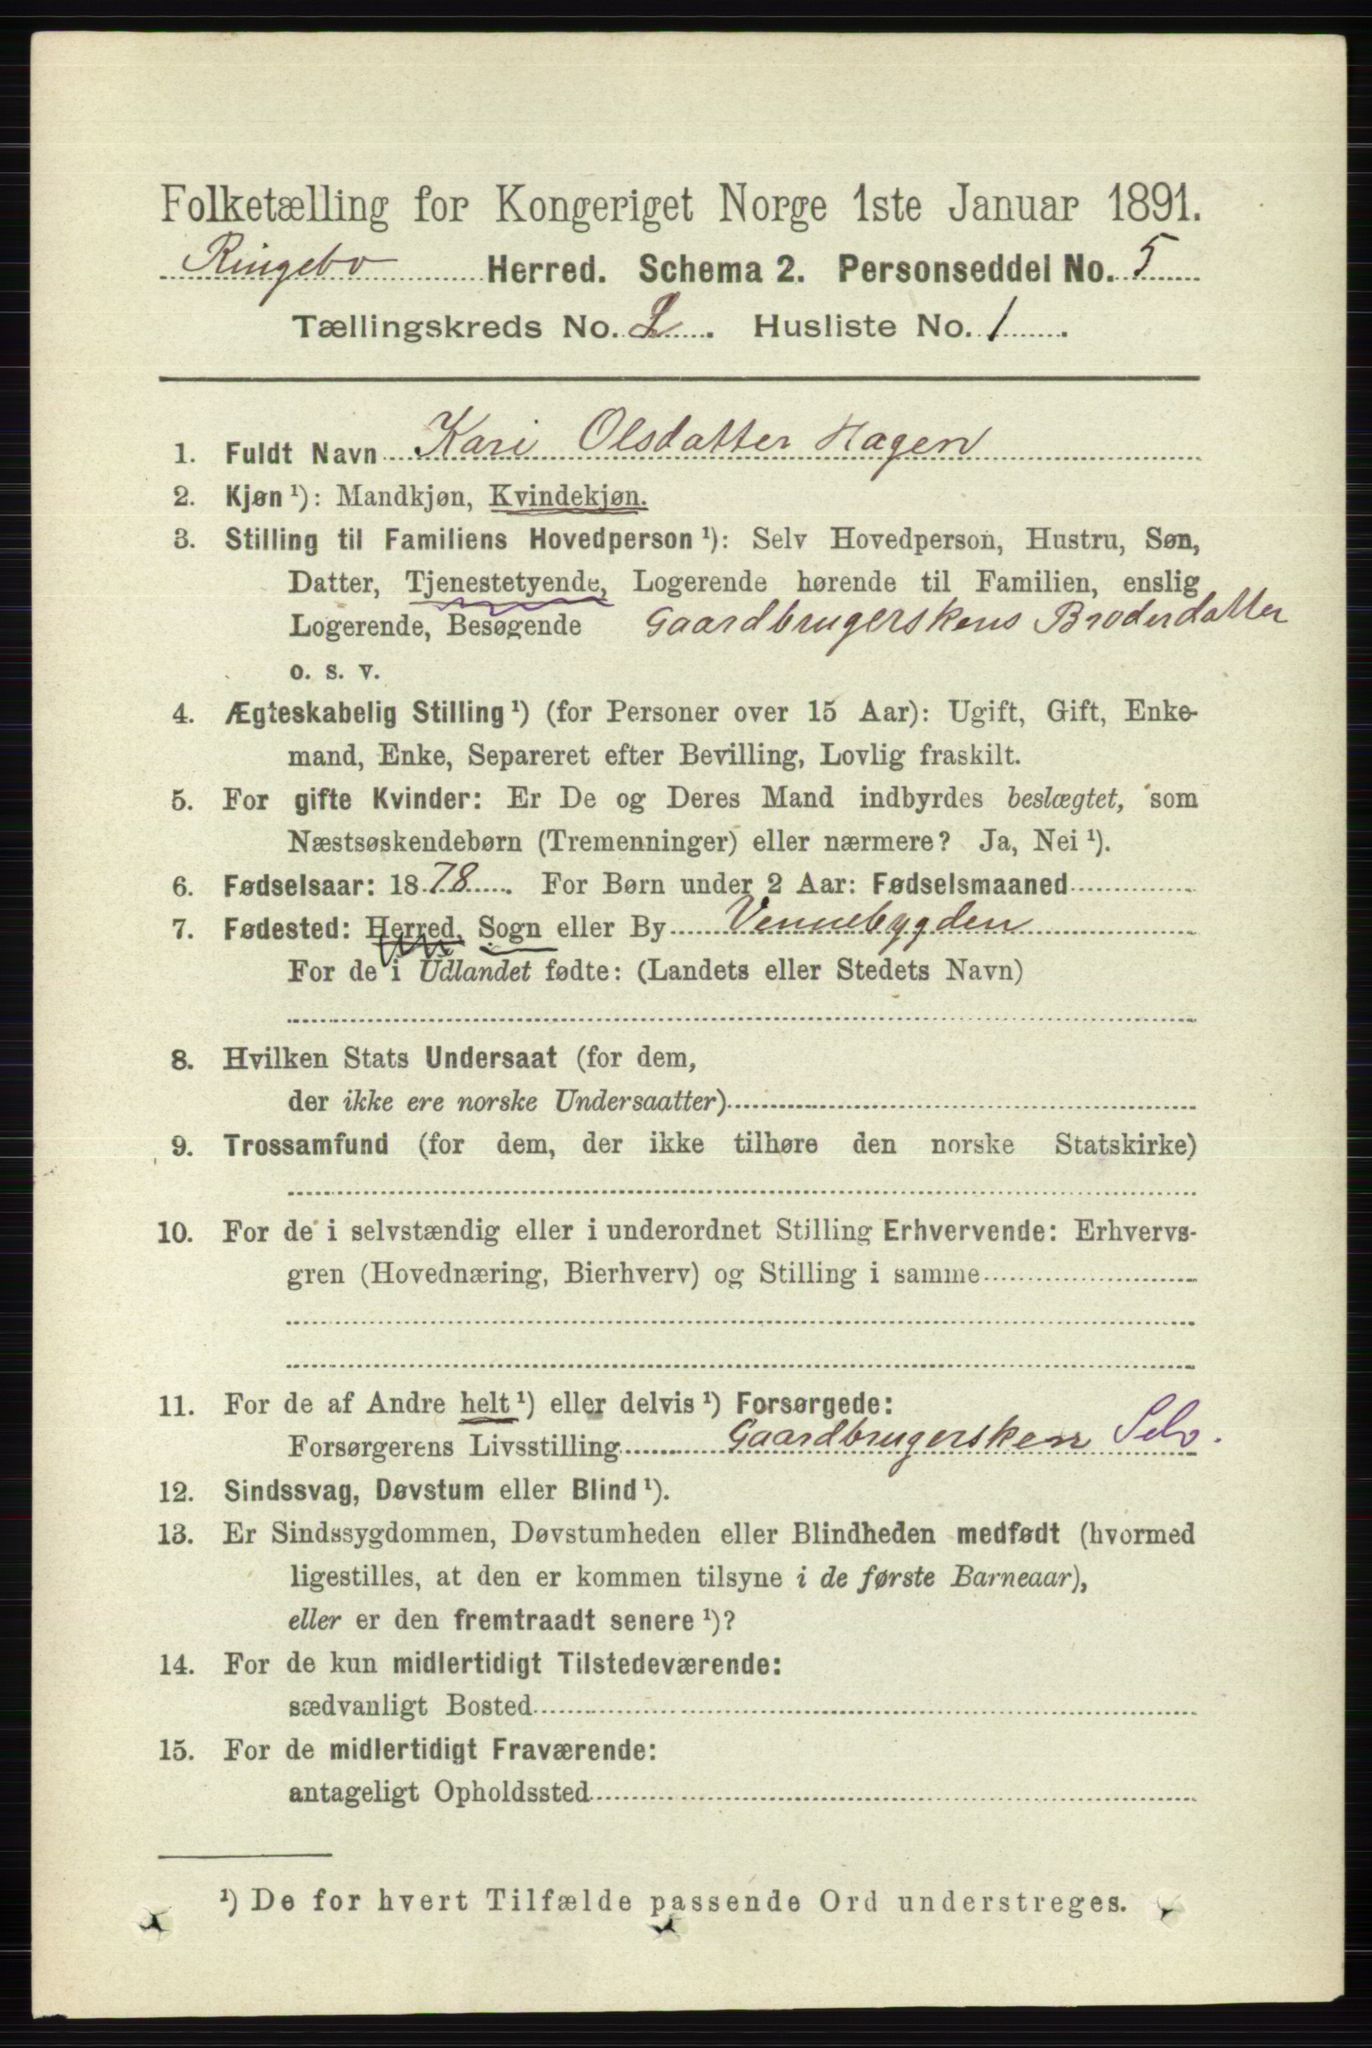 Folketælling for Kongeriget Norge 1ste Januar 1891.
Ringebo Herred. Schema 2. Personseddel No. 5
Tællingskreds No. 2. Husliste No. 1.
1. Fuldt Navn Kari Olsdatter Hagen
2. Kjøn ¹): Mandkjøn, Kvindekjøn.
3. Stilling til Familiens Hovedperson ¹): Selv Hovedperson, Hustru, Søn,
Datter, Tjenestetyende, Logerende hørende til Familien, enslig
Logerende, Besøgende Gaardbrugerskens Broderdatter
o. s. v.
4. Ægteskabelig Stilling ¹) (for Personer over 15 Aar): Ugift, Gift, Enke-
mand, Enke, Separeret efter Bevilling, Lovlig fraskilt.
5. For gifte Kvinder: Er De og Deres Mand indbyrdes beslægtet, som
Næstsøskendebørn (Tremenninger) eller nærmere? Ja, Nei ¹).
6. Fødselsaar: 1878. For Børn under 2 Aar: Fødselsmaaned
7. Fødested: Herred, Sogn eller By Vennebygden
For de i Udlandet fødte: (Landets eller Stedets Navn)
8. Hvilken Stats Undersaat (for dem,
der ikke ere norske Undersaatter)
9. Trossamfund (for dem, der ikke tilhøre den norske Statskirke)
10. For de i selvstændig eller i underordnet Stilling Erhvervende: Erhvervs-
gren (Hovednæring, Bierhverv) og Stilling i samme
11. For de af Andre helt ¹) eller delvis ¹) Forsørgede:
Forsørgerens Livsstilling Gaardbrugersken Selv.
12. Sindssvag, Døvstum eller Blind ¹).
13. Er Sindssygdommen, Døvstumheden eller Blindheden medfødt (hvormed
ligestilles, at den er kommen tilsyne i de første Barneaar),
eller er den fremtraadt senere ¹)?
14. For de kun midlertidigt Tilstedeværende:
sædvanligt Bosted
15. For de midlertidigt Fraværende:
antageligt Opholdssted
¹) De for hvert Tilfælde passende Ord understreges.